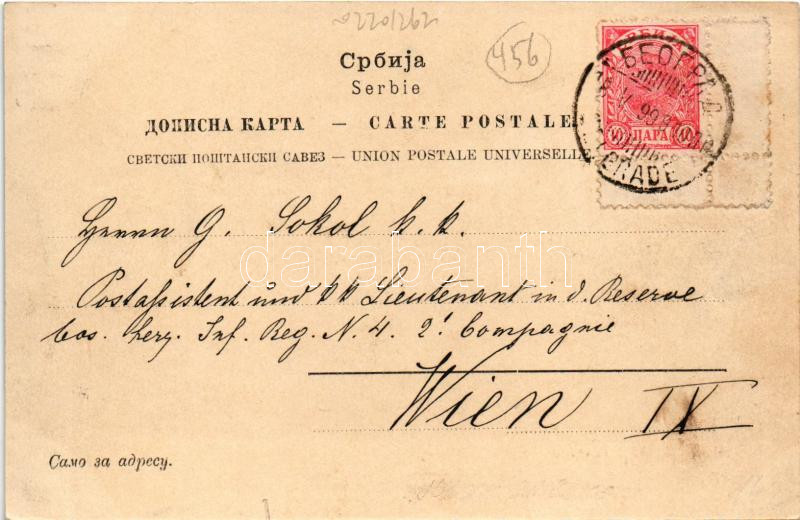 0220/262
456
Србија
Serbie
ДОПИСНА КАРТА — CARTE POSTALE
СВЕТСКИ ПОШТАНСКИ САВЕЗ — UNION POSTALE UNIVERSELLE
СРБИЈА
10 ПАРА 10
БЕОГРАД
Herrn G. Sokol k. k.
darabanth
Postassistent und kk Lieutenant in d. Reserve
bos. herz. Inf. Reg. N. 4. 2! Compagnie
Wien IX
Само за адресу.